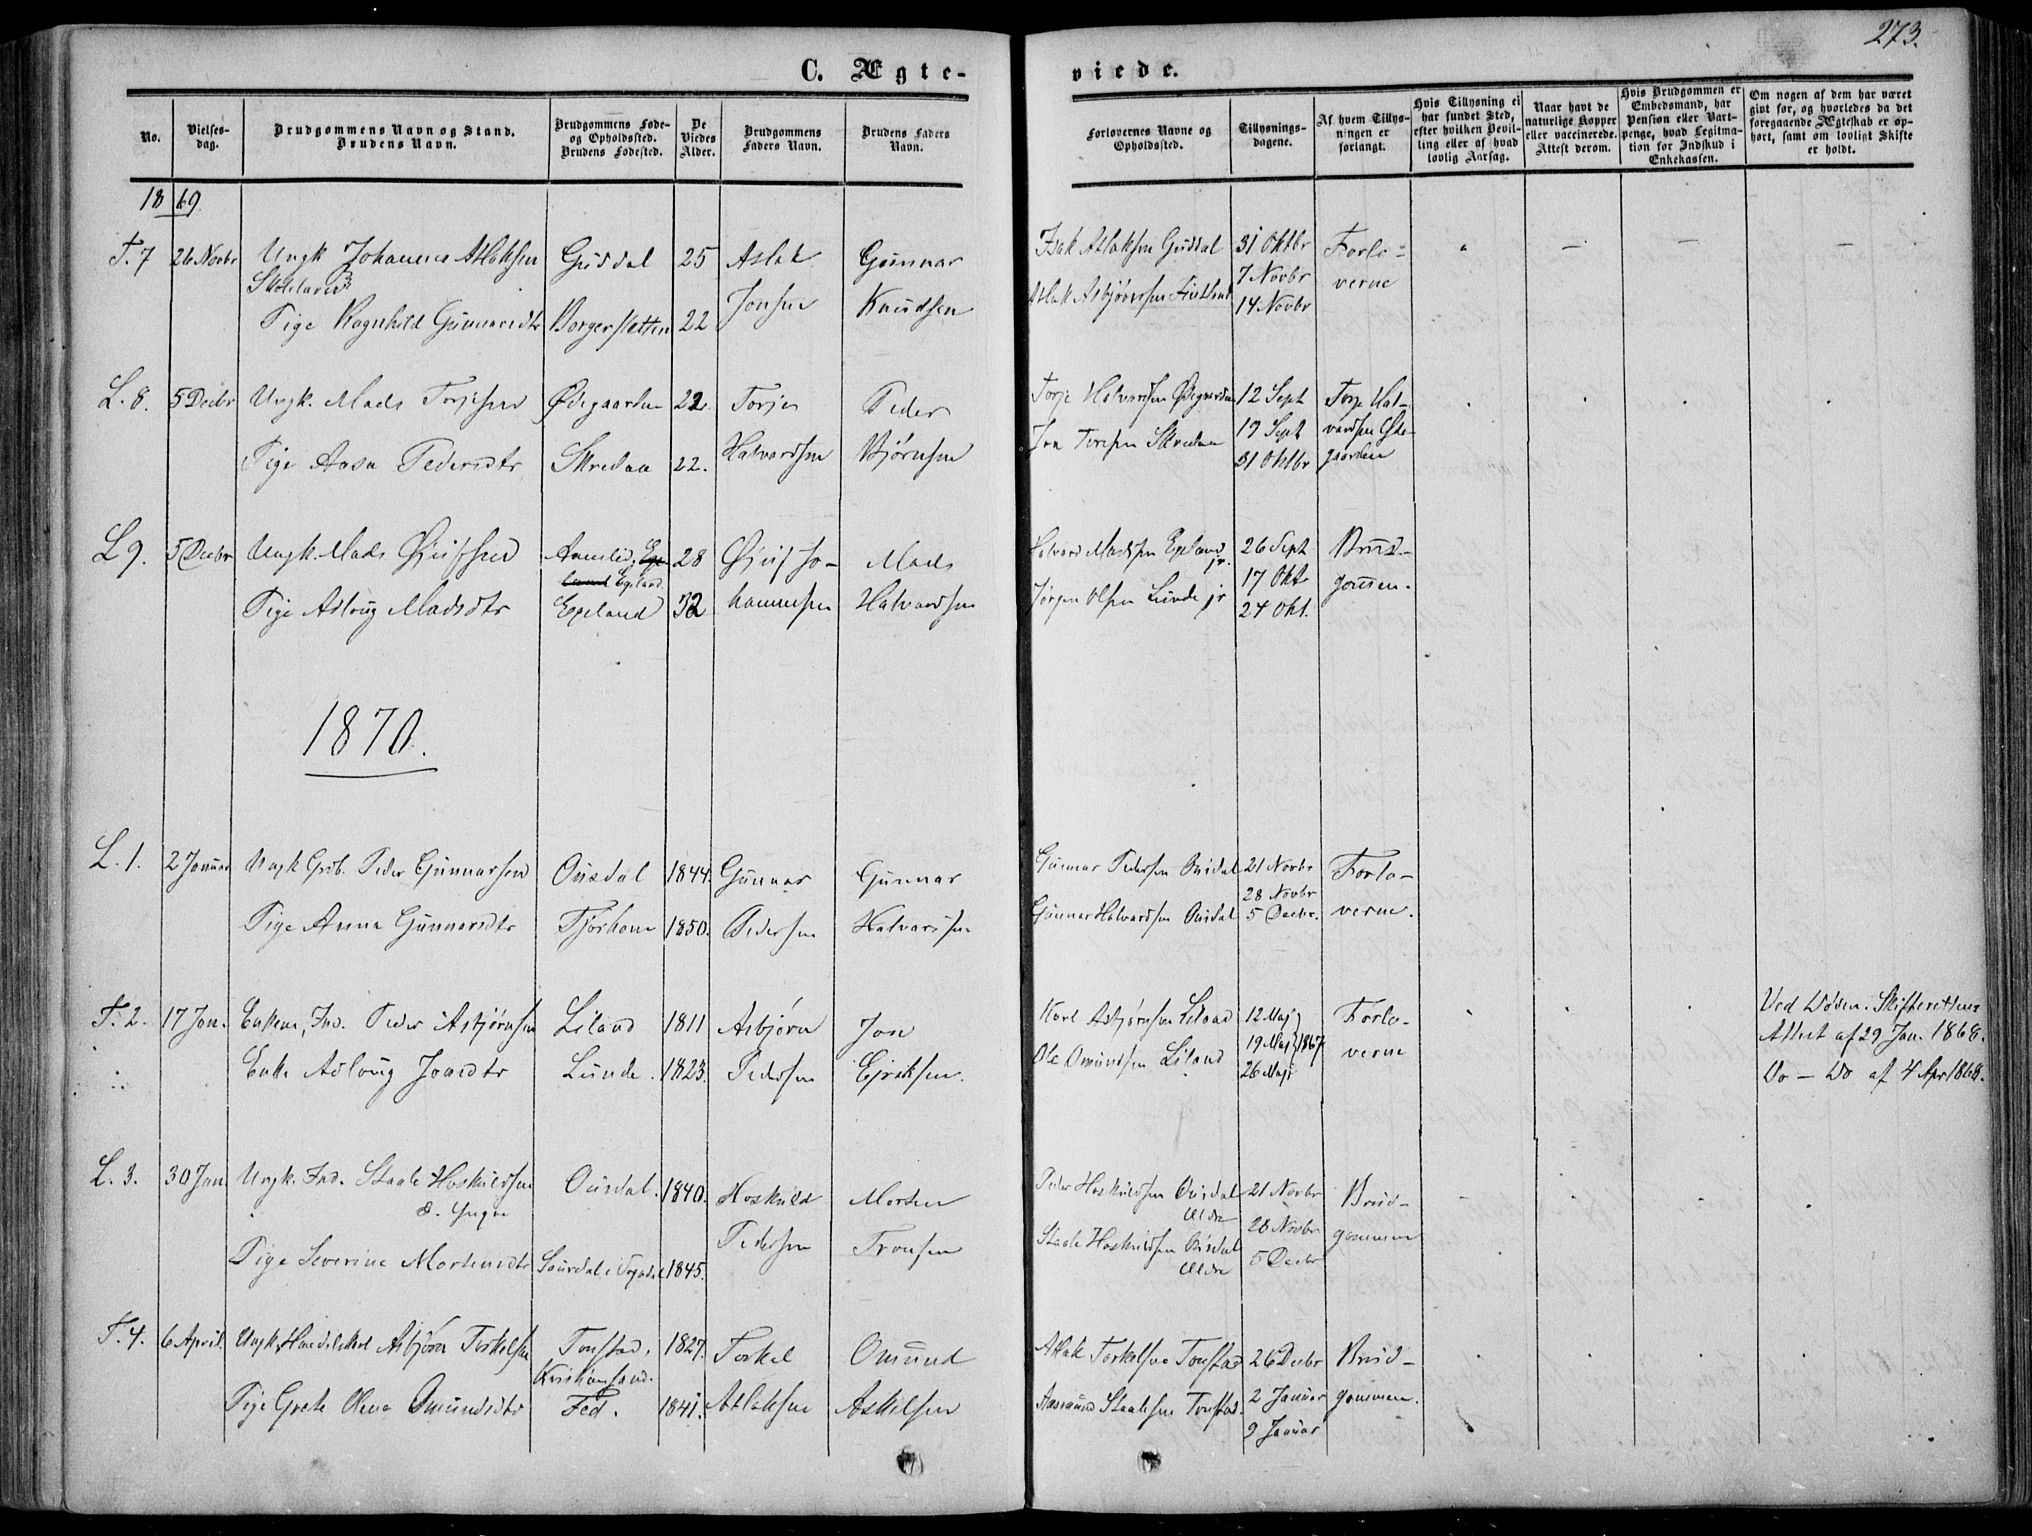 273.
C. Ægteviede.
No.
Vielses-
dag.
Brudgommens Navn og Stand.
Brudens Navn.
Brudgommens Føde-
og Opholdssted.
Brudens Fødested.
De
Viedes
Alder.
Brudgommens
Faders Navn.
Brudens Faders
Navn.
Forlovernes Navne og
Opholdssted.
Tillysnings-
dagene.
Af hvem Tillys-
ningen er
forlangt.
Hvis Tillysning ei
har fundet Sted,
efter hvilken Bevil-
ling eller af hvad
lovlig Aarsag.
Naar havt de
naturlige Kopper
eller vaccinerede.
Attest derom.
Hvis Brudgommen er
Embedsmand, har
Pension eller Vart-
penge, hvad Legitima-
tion for Indskud i
Enkekassen.
Om nogen af dem har været
givt før, og hvorledes da det
foregaaende Ægteskab er op-
hørt, samt om lovligt Skifte
er holdt.
1869
F. 7 26 Novbr Ungk Johannes Atlaksen Gusdal 25 Aslak Gunnar Isak Atlaksen Gusdal 31 Oktbr Forlo-
7 Novbr verne
Tige Ragnhild Gunnarsdtr Borgersletten 22 Jonsen Knudsen Atlak Asbjørnsen 14 Novbr
L. 8. 5 Decbr Ungk. Mads Torjesen Ødegaarden 22. Torjes Peder Torje Halvardsen Ødegaarden 12 Sept Torje Hal-
19 Sept vardsen Øde-
Tige Aasa Pedersdtr Skredaa 22. Halvardsen Bjørnsen Jon Toresen Skredaa 31 Oktbr gaarden
L 9. 5 Decbr Ungk. Mads Ejulfsen 28 Ejulf Jo- Mads Halvard Madsen Egeland jr. 26 Sept Brud-
Egeland 17 Okt gommen.
Tige Asloug Madsdtr Egeland 32 hannesen Halvardsen Jørgen Olsen Lunde jr 24 Okt.
1870.
L. 1. 2 Januar Ungk Grb. Peder Gunnarsen Ousdal 1844. Gunnar Gunnar Gunnar Pedersen Ousdal 21 Novbr Forlo-
28 Novbr
Tige Anna Gunnarsdtr Tjørhom 1850. Pedersen Halvardsen Gunnar Halvardsen Ousdal 5 Decbr. verne.
F. 2. 17 Jan. Enkem, Ind. Peder Asbjørnsen Liland 1811 Asbjørn Jon Karl Asbjørnsen Liland 12 Maj Forlo- Ved Døden. Skifterettens
19 Maj 1867 Attest af 29 Jan. 1868.
Enke Asloug Jonsdtr Lunde. 1823. Pedersen Ejriksen. Ole Omundsen Liland 26 Maj verne Do — Do af 4 Apr 1868.
L. 3. 30 Jan Ungk. Ind. Staale Hoskuldsen Ousdal. 1840. Hoskuld Morten Peder Hoskuldsen Ousdal 21 Novbr Brud-
d. Yngre Ældre 28 Novbr
Tige Severine Mortensdtr 1845. Pedersen Tronsen Staale Hoskuldsen Ousdal 5 Decbr gommen
Ældre
F. 4. 6 April. Ungk, Asbjørn Torkelsen Tonstad, 1827. Torkel Omund Atlak Torkelsen Tonstad 26 Decbr Brud-
Kristiansand.
Tige Grete Olena Omundsdtr Fed. 1841. Atlaksen Askilsen Aasmund Staalesen Tonstad. 2 Januar gommen.
9 Januar